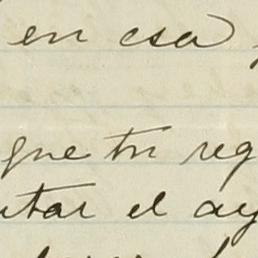 en esa
que tu reg
utar el ay